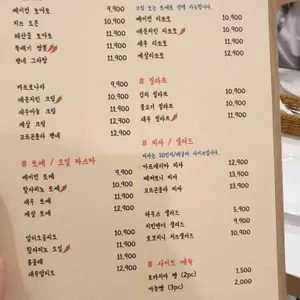 베이컨 토마토 9,900
치즈 오븐 10,900
해산물 토마토 11,900
뚝배기 짬뽕 11,900
펜네 그라탕 11,900
까르보나라 9,900
매운치킨 크림 10,900
새우마늘 크림 11,900
게살 크림 12,900
고르곤졸라 펜네 12,900
# 로제 / 오일 파스타
베이컨 로제 9,900
할라피뇨 로제 10,900
새우 로제 11,900
게살 로제 12,900
알리오올리오 9,900
할라피뇨 오일 10,900
봉골레 11,900
새우알리오 11,900
크림 또는 로제로 선택 가능합니다.
베이컨 리조또 9,900
매운치킨 리조또 10,900
새우 리조또 11,900
게살리조또 12,900
# 필라프
김치 필라프 9,900
불고기 필라프 10,900
새우 필라프 11,900
# 피자 / 샐러드
마르게리타 피자 12,900
베이컨 피자 13,900
고르곤졸라 피자 13,900
하우스 샐러드 5,900
치킨텐더 샐러드 9,900
보코치니 치즈샐러드 10,900
# 사이드 메뉴
포카치아 빵 (2pc) 1,500
마늘빵 (3pc) 2,000